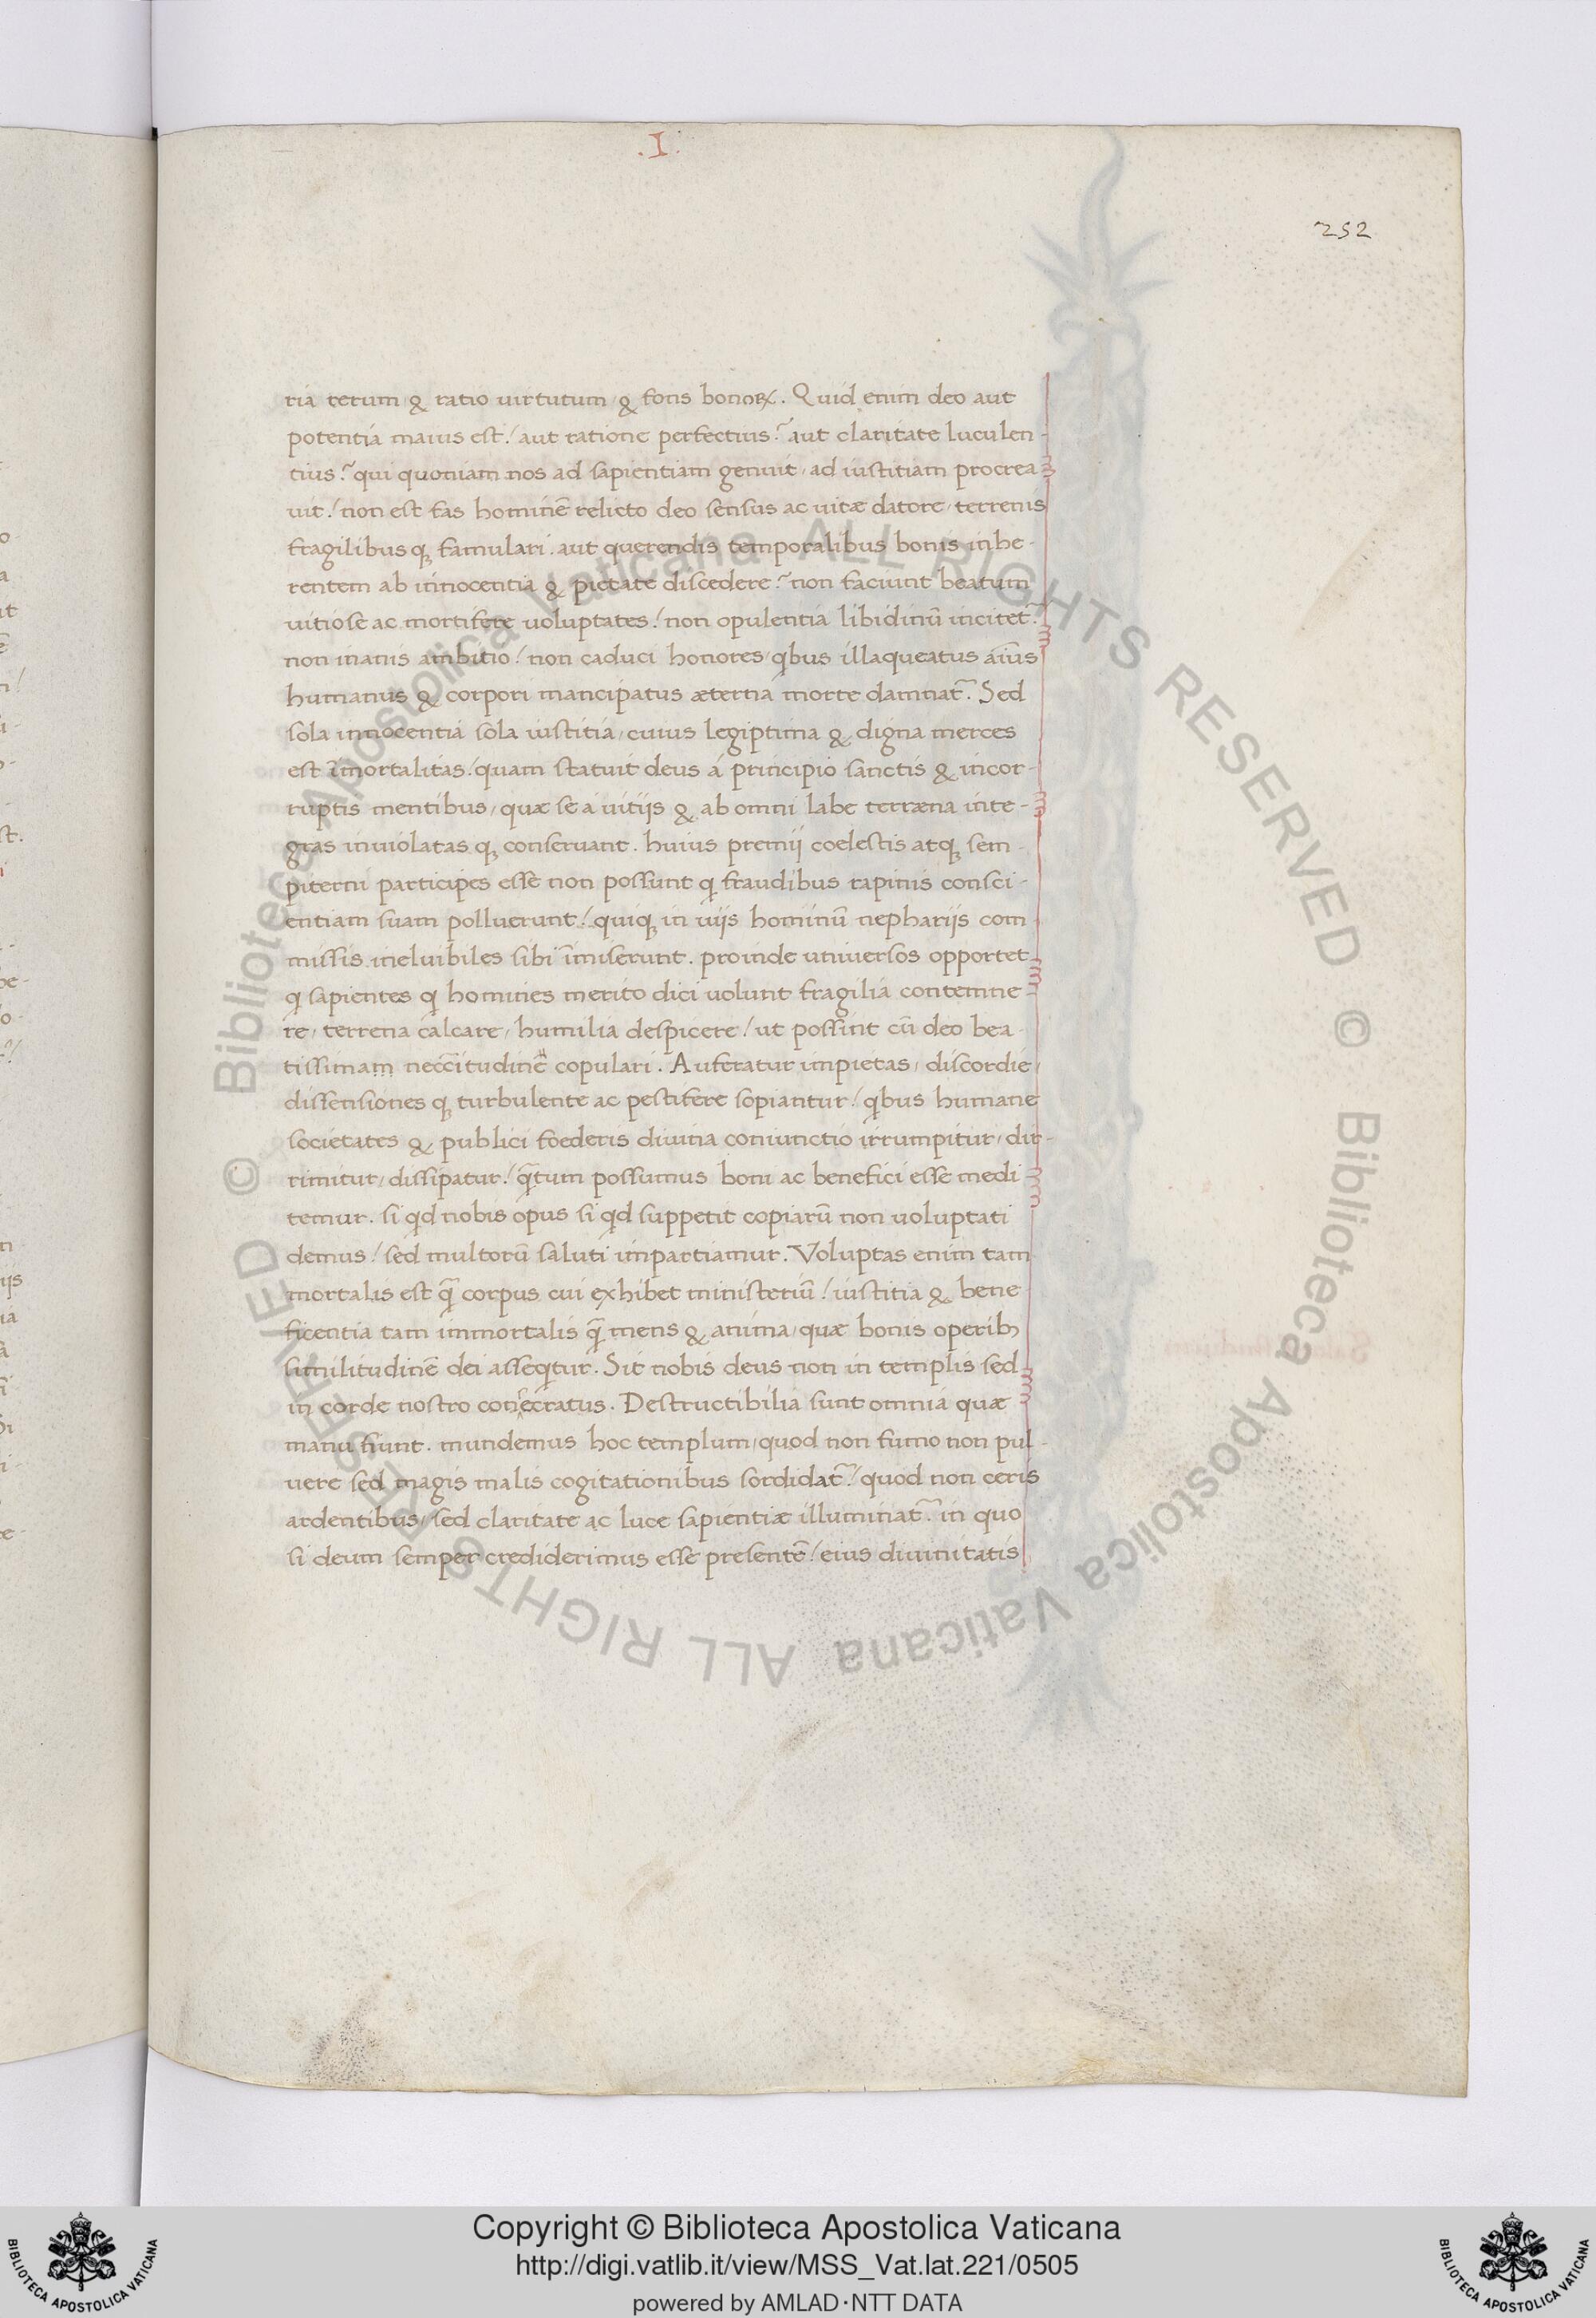 .I.
252
ria rerum & ratio uirtutum & fons bonoꝝ. Quid enim deo aut
potentia maius est! aut ratione perfectius? aut claritate luculen-
tius? qui quoniam nos ad sapientiam genuit, ad iustitiam procrea
uit! non est fas hominē relicto deo sensus ac uitæ datore, terrenis
fragilibus qꝫ famulari. aut querendis temporalibus bonis inhe-
rentem ab innocentia & pietate discedere? non faciunt beatum
uitiose ac mortifere uoluptates! non opulentia libidinū incitet?
non inanis ambitio! non caduci honores, qbus illaqueatus aīus
humanus & corpori mancipatus æterna morte damnat᷑. Sed
sola innocentia sola iustitia, cuius legiptima & digna merces
est īmortalitas! quam statuit deus á principio sanctis & incor-
ruptis mentibus, quæ se a uitijs & ab omni labe terræna inte-
gras inuiolatas qꝫ conseruant. huius premij coelestis atqꝫ sem-
piterni participes esse non possunt q fraudibus rapinis consci-
entiam suam polluerunt! quiqꝫ in uijs hominū nepharijs com-
missis ineluibiles sibi īmiserunt. proinde uniuersos opportet
q sapientes q homines merito dici uolunt fragilia contemne-
re, terrena calcare, humilia despicere! ut possint cū deo bea
tissimam neccītudinē copulari. Auferatur impietas, discordie,
dissensiones qꝫ turbulente ac pestifere sopiantur! qbus humane
societates & publici foederis diuina coniunctio irrumpitur, dir-
rimitur, dissipatur! qᷓtum possumus boni ac benefici esse medi-
temur. si qd nobis opus si qd suppetit copiarū non uoluptati
demus! sed multorū saluti impartiamur. Voluptas enim tam
mortalis est qᷓ corpus cui exhibet ministeriū! iustitia & bene
ficentia tam immortalis qᷓ mens & anima, quæ bonis operibꝫ
similitudinē dei asseqtur. Sit nobis deus non in templis sed
in corde nostro consecratus. Destructibilia sunt omnia quæ
manu fiunt. mundemus hoc templum, quod non fumo non pul-
uere sed magis malis cogitationibus sordidat᷑! quod non ceris
ardentibus, sed claritate ac luce sapientiæ illuminat᷑. in quo
si deum semper crediderimus esse presentē! eius diuinitatis
© Biblioteca Apostolica Vaticana ALL RIGHTS RESERVED © Biblioteca Apostolica Vaticana ALL RIGHTS RESERVED
Copyright © Biblioteca Apostolica Vaticana
http://digi.vatlib.it/view/MSS_Vat.lat.221/0505
powered by AMLAD·NTT DATA
BIBLIOTECA APOSTOLICA VATICANA
BIBLIOTECA APOSTOLICA VATICANA